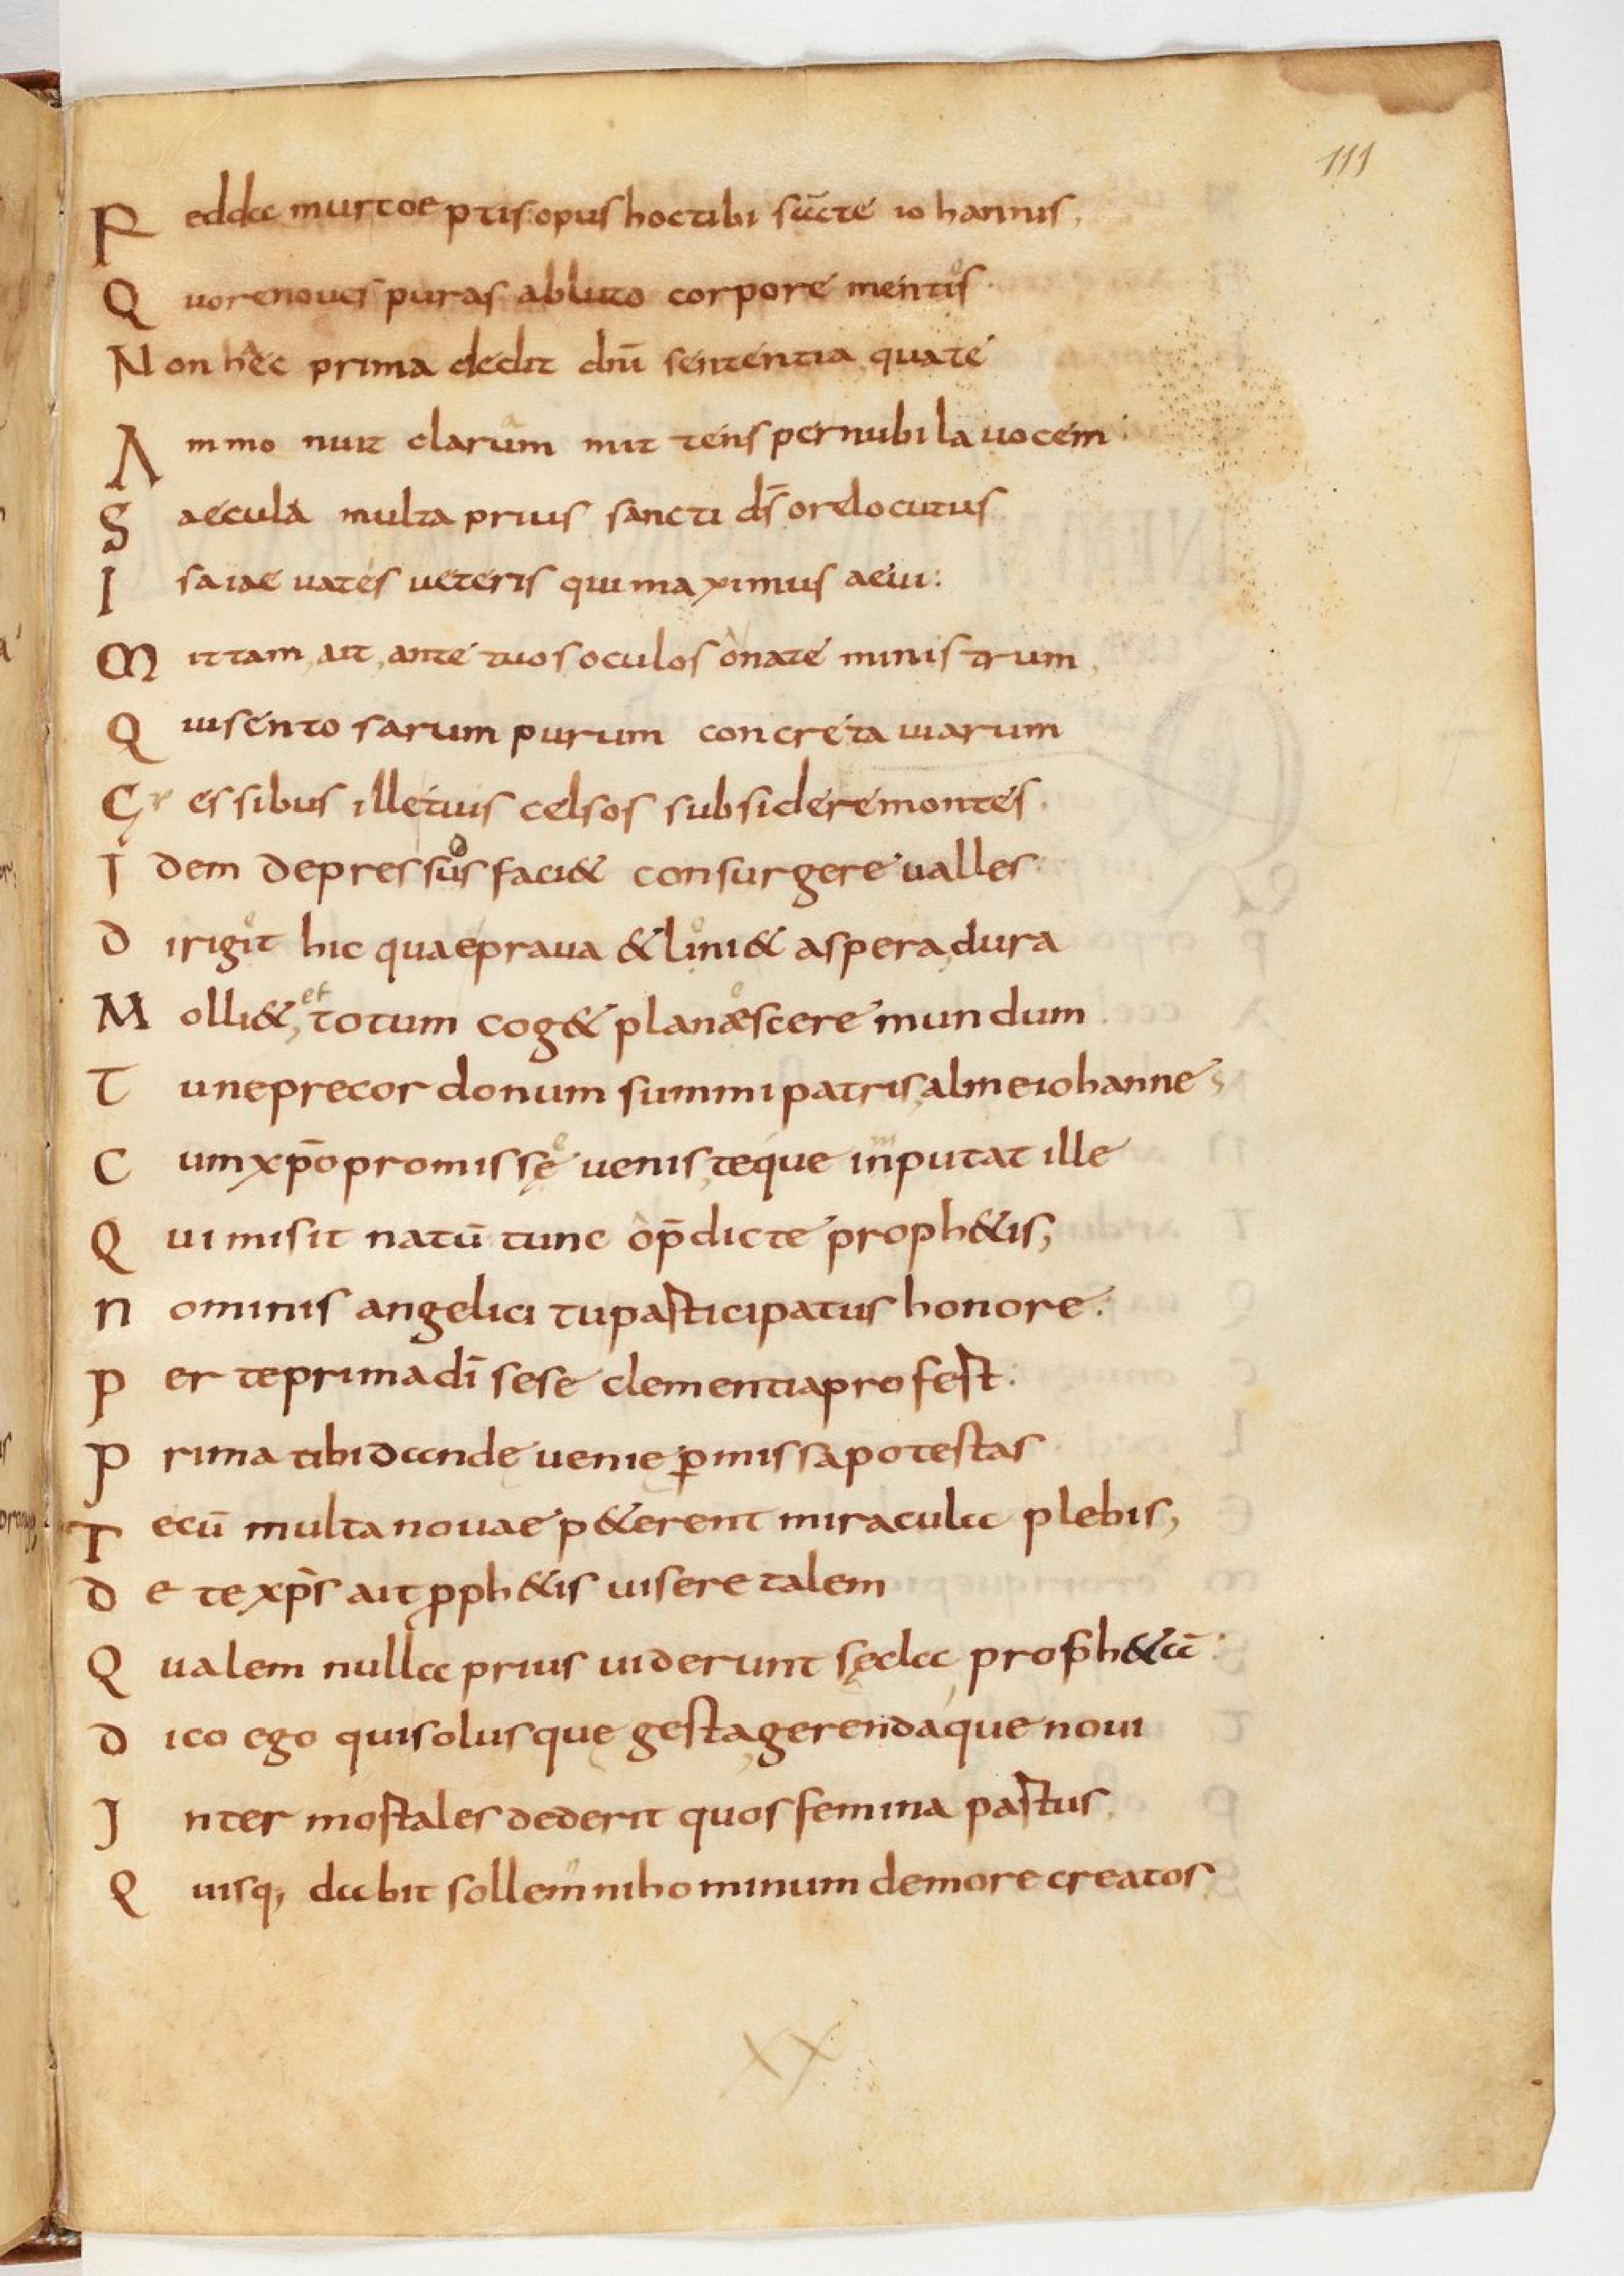 111
Redda murtoeptis opus hoc tibi sc̄te iohannis,
Quo renoues puras abluto corpore mentes
Non hec prima dedit dn̄i sententia quate
Ammonuit clarum mittens per nubila uocem
Saecula multa prius sancti ds̄ ore locutus
Isaiae uates ueteris qui maximus aeui:
Mittam, ait, ante tuos oculos o nate ministrum,
Qui sentosarum purum concreta uiarum
Gressibus ille tuis celsos subsidere montes.
Idem depressos faci& consurgere ualles
Dirigit hic quae praua & lini& aspera, dura
Molli&, et totum cog& planæscere mundum
Tu ne precor donum summi patris, alme iohannes
Cum xp̄o promissę uenis, teque inputat ille
Qui misit natū tunc o p̄dicte proph&is,
Nominis angelici tu participatus honore.
Per te prima dī sese clementia profert.
Prima tibi dandę uenię p̱missa potestas
Tecū multa nouae p&erent miracula plebis,
De te xp̄s ait pph&is uisere talem
Qualem nulla prius uiderunt sęcla proph&ā:
Dico ego qui solus quę gesta, gerendaque noui
Inter mortales dederit quos femina partus,
Quisq; dabit sollemni hominum de more creatos
XX